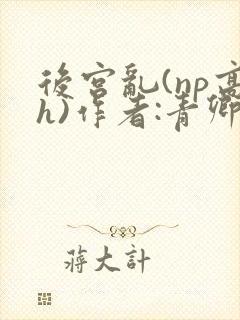 後宮亂(np高
h)作者:青卿
蔣大計